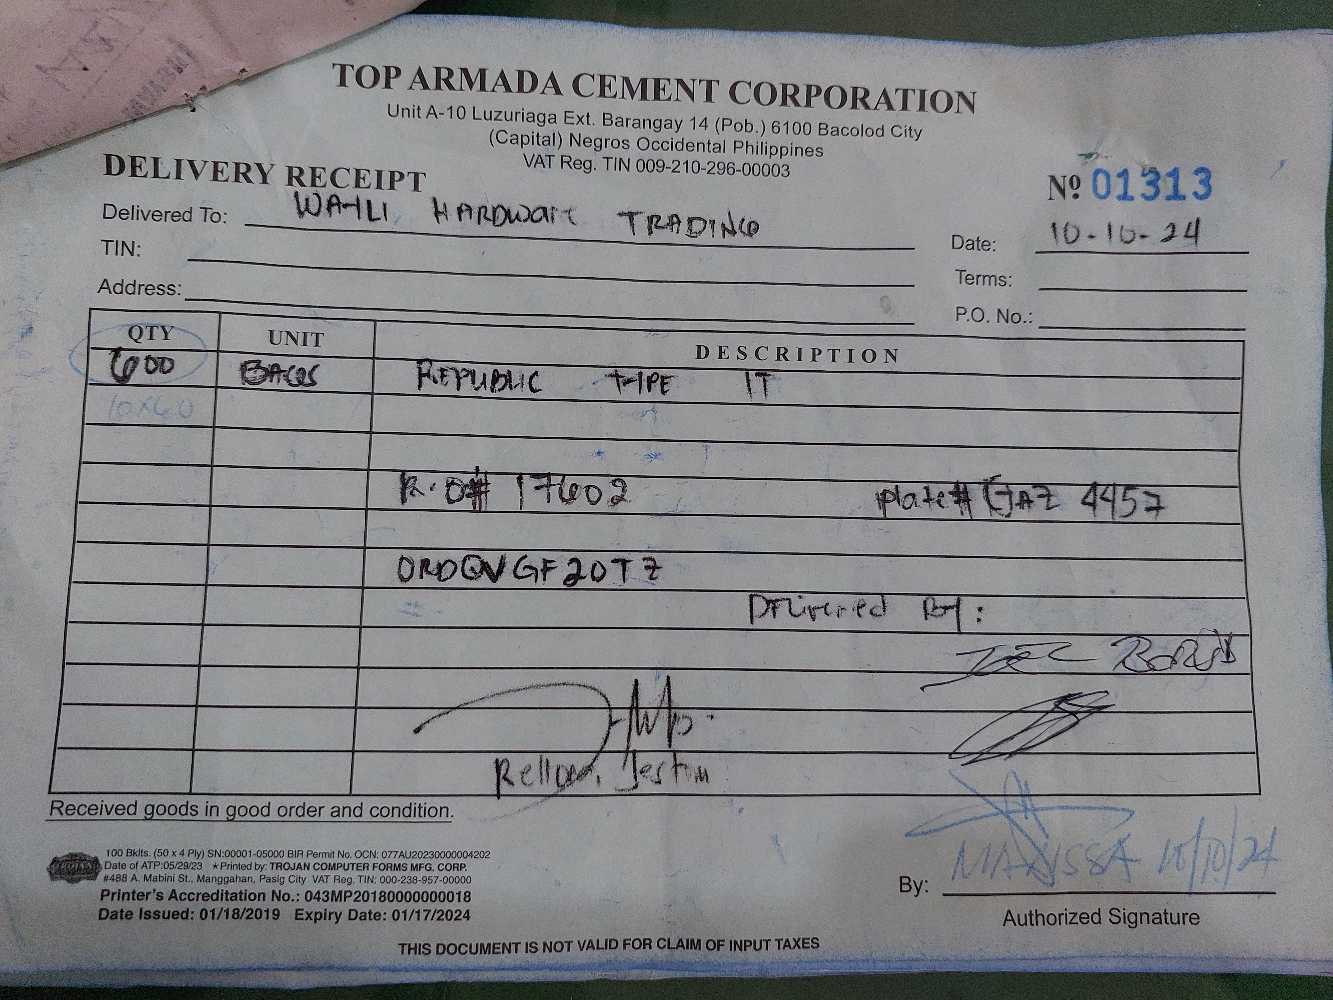 TOP ARMADA CEMENT CORPORATION
Unit A-10 Luzuriaga Ext. Barangay 14 (Pob.) 6100 Bacolod City
(Capital) Negros Occidental Philippines
VAT Reg. TIN 009-210-296-00003
DELIVERY RECEIPT
Nº 01313
Delivered To: WAHLI HARDWARE TRADING
Date: 10-10-24
TIN:
Terms:
Address:
P.O. No.:
QTY UNIT DESCRIPTION
600 BAGS REPUBLIC TYPE 1T
10x60
R.O# 17602 plate# GAZ 4457
ORDQVGF20TZ
Delivered By:
Rellom, Jestim
Received goods in good order and condition.
100 Bklts. (50 x 4 Ply) SN:00001-05000 BIR Permit No. OCN: 077AU20230000004202
Date of ATP:05/29/23 ★Printed by: TROJAN COMPUTER FORMS MFG. CORP.
#488 A. Mabini St., Manggahan, Pasig City VAT Reg. TIN: 000-238-957-00000
Printer's Accreditation No.: 043MP20180000000018
Date Issued: 01/18/2019 Expiry Date: 01/17/2024
MARISSA 10/10/24
By:
Authorized Signature
THIS DOCUMENT IS NOT VALID FOR CLAIM OF INPUT TAXES